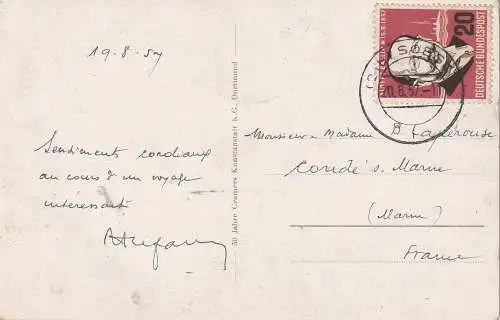 19-8-57
Sentiments cordiaux
au cours d'un voyage
intéressant
50 Jahre Cramers Kunstanstalt K.G., Dortmund
20
DEUTSCHE BUNDESPOST
SOEST
20.8.57.-11
B
Monsieur & Madame Lapérouse
Condé s. Marne
(Marne)
France